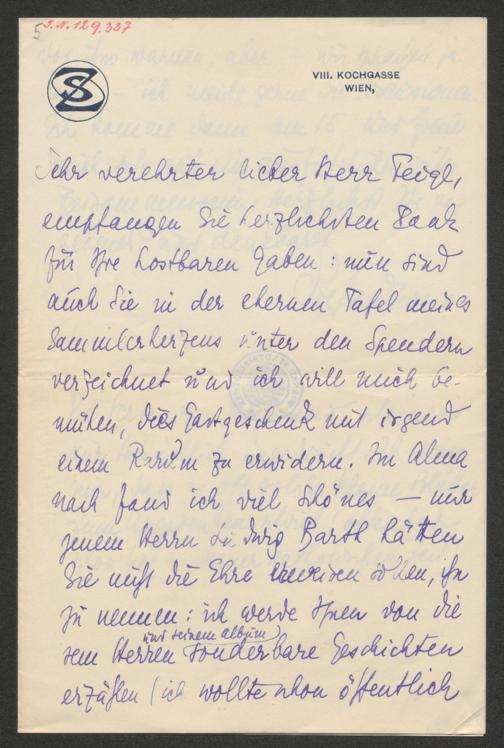 5
I.N. 129.337
SZ
VIII. KOCHGASSE
WIEN,
Sehr verehrter lieber Herr Feigl,
empfangen Sie herzlichsten Dank
für Ihre kostbaren Gaben: nun sind
auch Sie in der ehernen Tafel meines
Sammlerherzens unter den Spendern
verzeichnet und ich will mich be-
mühen, dies Gastgeschenk mit irgend
einem Rarum zu erwidern. Im Alma
nach fand ich viel schönes — nur
jenem Herrn Ludwig Barth hätten
Sie nicht die Ehre erweisen sollen, ihn
zu nennen: ich werde Ihnen von die
sem Herren und seinem Album sonderbare Geschichten
erzählen (ich wollte schon öffentlich